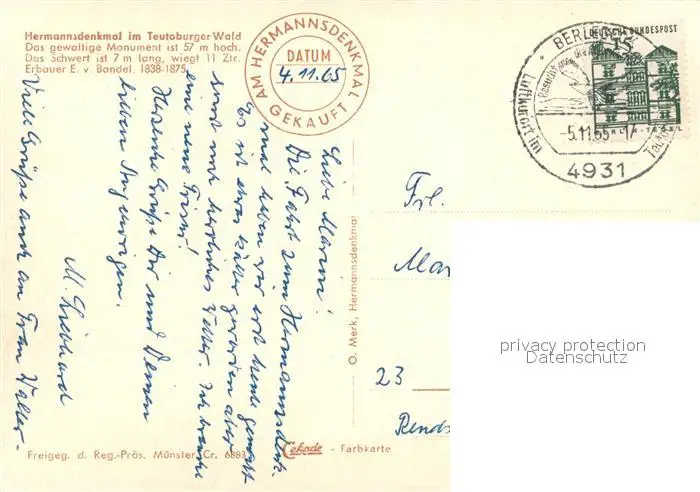 Hermannsdenkmal im Teutoburger Wald
Das gewaltige Monument ist 57 m hoch.
Das Schwert ist 7 m lang, wiegt 11 Ztr.
Erbauer E. v. Bandel. 1838-1875
AM HERMANNSDENKMAL
DATUM
4.11.65
GEKAUFT
DEUTSCHE BUNDESPOST
15
BERLEBECK
Luftkurort im
-5.11.65-17
4931
Liebe Mareni!
Die Fahrt zum Hermannsdenk-
mal haben wir erst heute gemacht
Es ist etwas kälter geworden aber
sonst noch herrliches Wetter. Ich brauche
eine neue Frisur!
Herzliche Grüße Dir und Deinen
lieben Angehörigen.
M. Liebhard
Viele Grüße auch an Frau Walter-
O. Merk, Hermannsdenkmal
Frl.
Mar
23
Rends
privacy protection
Datenschutz
Freigeg. d. Reg.-Präs. Münster Cr. 6883
Cekade - Farbkarte